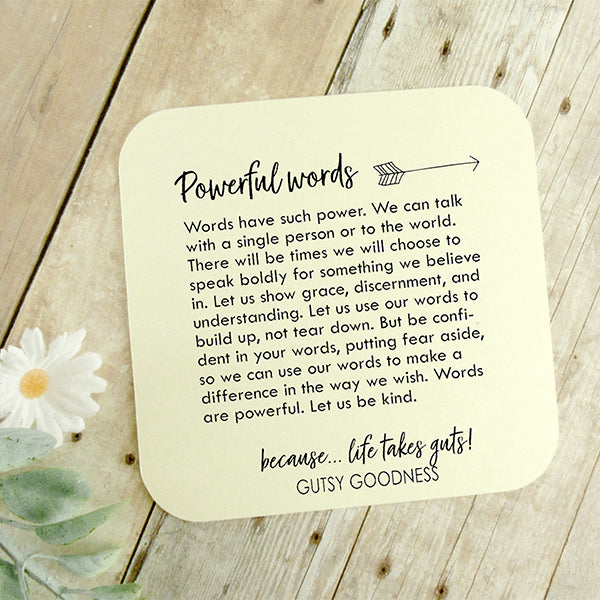 Powerful words
Words have such power. We can talk
with a single person or to the world.
There will be times we will choose to
speak boldly for something we believe
in. Let us show grace, discernment, and
understanding. Let us use our words to
build up, not tear down. But be confi-
dent in your words, putting fear aside,
so we can use our words to make a
difference in the way we wish. Words
are powerful. Let us be kind.
because... life takes guts!
GUTSY GOODNESS